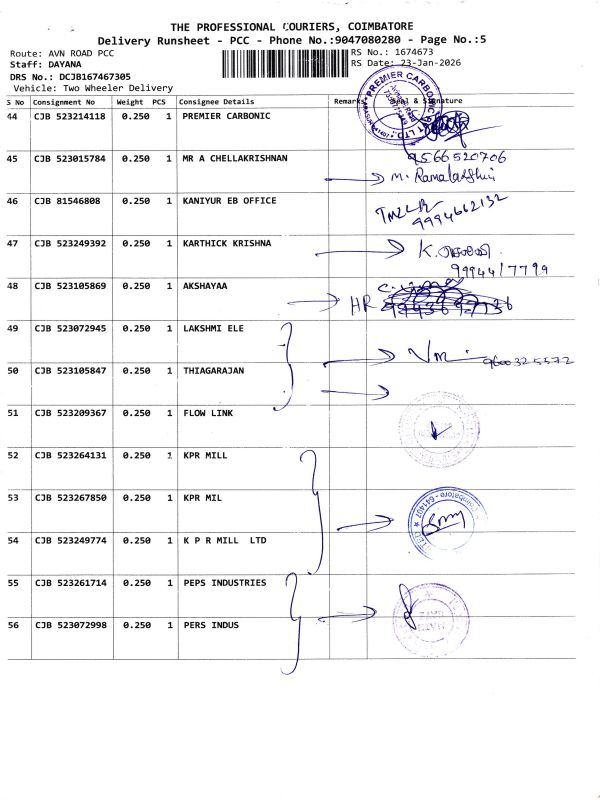 THE PROFESSIONAL COURIERS, COIMBATORE
Delivery Runsheet - PCC - Phone No.:9047080280 - Page No.:5
Route: AVN ROAD PCC
RS No.: 1674673
Staff: DAYANA
RS Date: 23-Jan-2026
DRS No.: DCJB167467305
Vehicle: Two Wheeler Delivery
S No Consignment No Weight PCS Consignee Details Remarks Seal & Signature
44 CJB 523214118 0.250 1 PREMIER CARBONIC
PREMIER CARBONIC
45 CJB 523015784 0.250 1 MR A CHELLAKRISHNAN 9566520706
46 CJB 81546808 0.250 1 KANIYUR EB OFFICE
9994662132
47 CJB 523249392 0.250 1 KARTHICK KRISHNA
9994417799
48 CJB 523105869 0.250 1 AKSHAYAA
HR
49 CJB 523072945 0.250 1 LAKSHMI ELE
9600325572
50 CJB 523105847 0.250 1 THIAGARAJAN
51 CJB 523209367 0.250 1 FLOW LINK
52 CJB 523264131 0.250 1 KPR MILL
53 CJB 523267850 0.250 1 KPR MIL
Coimbatore - 641407
54 CJB 523249774 0.250 1 K P R MILL LTD
55 CJB 523261714 0.250 1 PEPS INDUSTRIES
56 CJB 523072998 0.250 1 PERS INDUS